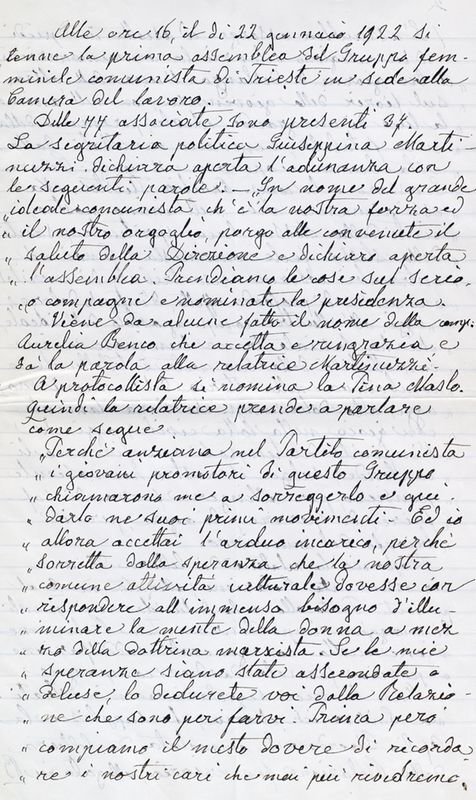 Alle ore 16, il dì 22 gennaio 1922 si
tenne la prima assemblea del Gruppo fem-
minile comunista di Trieste in sede alla
Camera del lavoro.
Delle 77 associate sono presenti 37.
La segritaria politica Giuseppina Marti-
nuzzi, dichiara aperta l'adunanza con
le seguenti parole. — "In nome del grande
" ideale comunista ch'è la nostra forza ed
" il nostro orgoglio, porgo alle convenute il
" saluto della Direzione e dichiaro aperta
" l'assemblea. Prendiamo le cose sul serio,
" o compagne e nominate la presidenza.
Viene da alcune fatto il nome della comp.
Aurelia Benco che accetta e ringrazia e
dà la parola alla relatrice Martinuzzi.
A protocollista si nomina la Tina Maslo.
Quindi la relatrice prende a parlare
come segue
"Perchè anziana nel Partito comunista
" i giovani promotori di questo Gruppo
" chiamarono me a sorreggerlo e gui-
" darlo ne suoi primi movimenti. Ed io
" allora accettai l'arduo incarico, perchè
" sorretta dalla speranza che la nostra
" comune attività culturale dovesse cor
" rispondere all'immenso bisogno d'illu-
" minare la mente della donna a mez
" zo della dottrina marxista. Se le mie
" speranze siano state assecondate o
" deluse, lo dedurete voi dalla Relazio
" ne che sono per farvi. Prima però
" compiamo il mesto dovere di ricorda
" re i nostri cari che mai più rivedremo.